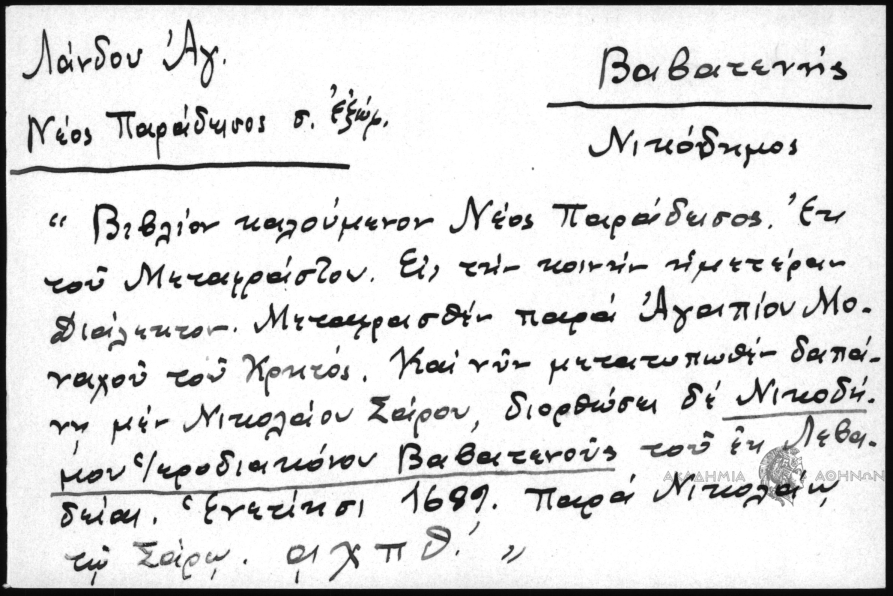 Λάνδου Ἀγ.
Νέος Παράδεισος σ. ἐξώφ.
Βαβατενής
Νικόδημος
“ Βιβλίον καλούμενον Νέος Παράδεισος. Ἐκ
τοῦ Μεταφράστου. Εἰς τὴν κοινὴν ἡμετέραν
Διάλεκτον. Μεταφρασθὲν παρὰ Ἀγαπίου Μο-
ναχοῦ τοῦ Κρητός. Καὶ νῦν μετατυπωθὲν δαπά-
νῃ μὲν Νικολάου Σάρου, διορθώσει δὲ Νικοδή-
μου Ἱεροδιακόνου Βαβατενοῦς τοῦ ἐκ Λεβα-
δείας. Ἑνετίῃσι 1689. Παρὰ Νικολάῳ
τῷ Σάρῳ. αχπθ. ”
ΑΚΑΔΗΜΙΑ ΑΘΗΝΩΝ